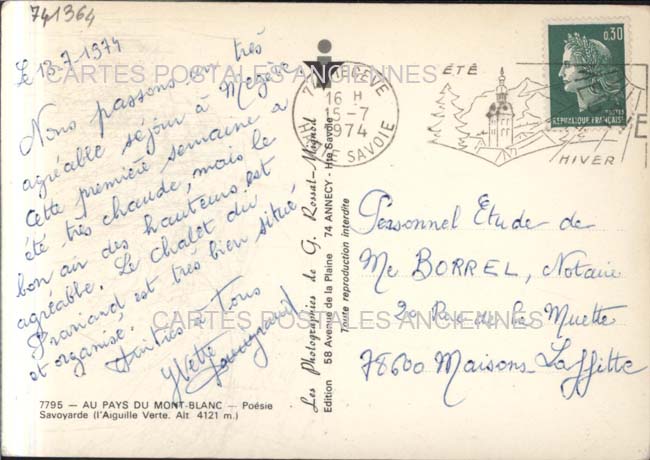 741364
Le 13-7-1974
Nous passons un très
agréable séjour à Megève
Cette première semaine a
été très chaude, mais le
bon air des hauteurs est
agréable. Le Chalet du
est très bien situé
et organisé.
Amitiés à Tous
Yvette
7795 — AU PAYS DU MONT-BLANC — Poésie
Savoyarde (l'Aiguille Verte. Alt 4121 m.)
Les Photographies de G. Rossat-Mignot
Edition 58 Avenue de la Plaine 74 ANNECY - Hte Savoie
Toute reproduction interdite
MEGEVE
16 H
15-7
1974
HTE SAVOIE
ÉTÉ
HIVER
0,30
POSTES
REPUBLIQUE FRANÇAISE
Personnel Etude de
Me BORREL, Notaire
20 Rue de la Muette
78600 Maisons-Laffitte
CARTES POSTALES ANCIENNES
CARTES POSTALES ANCIENNES